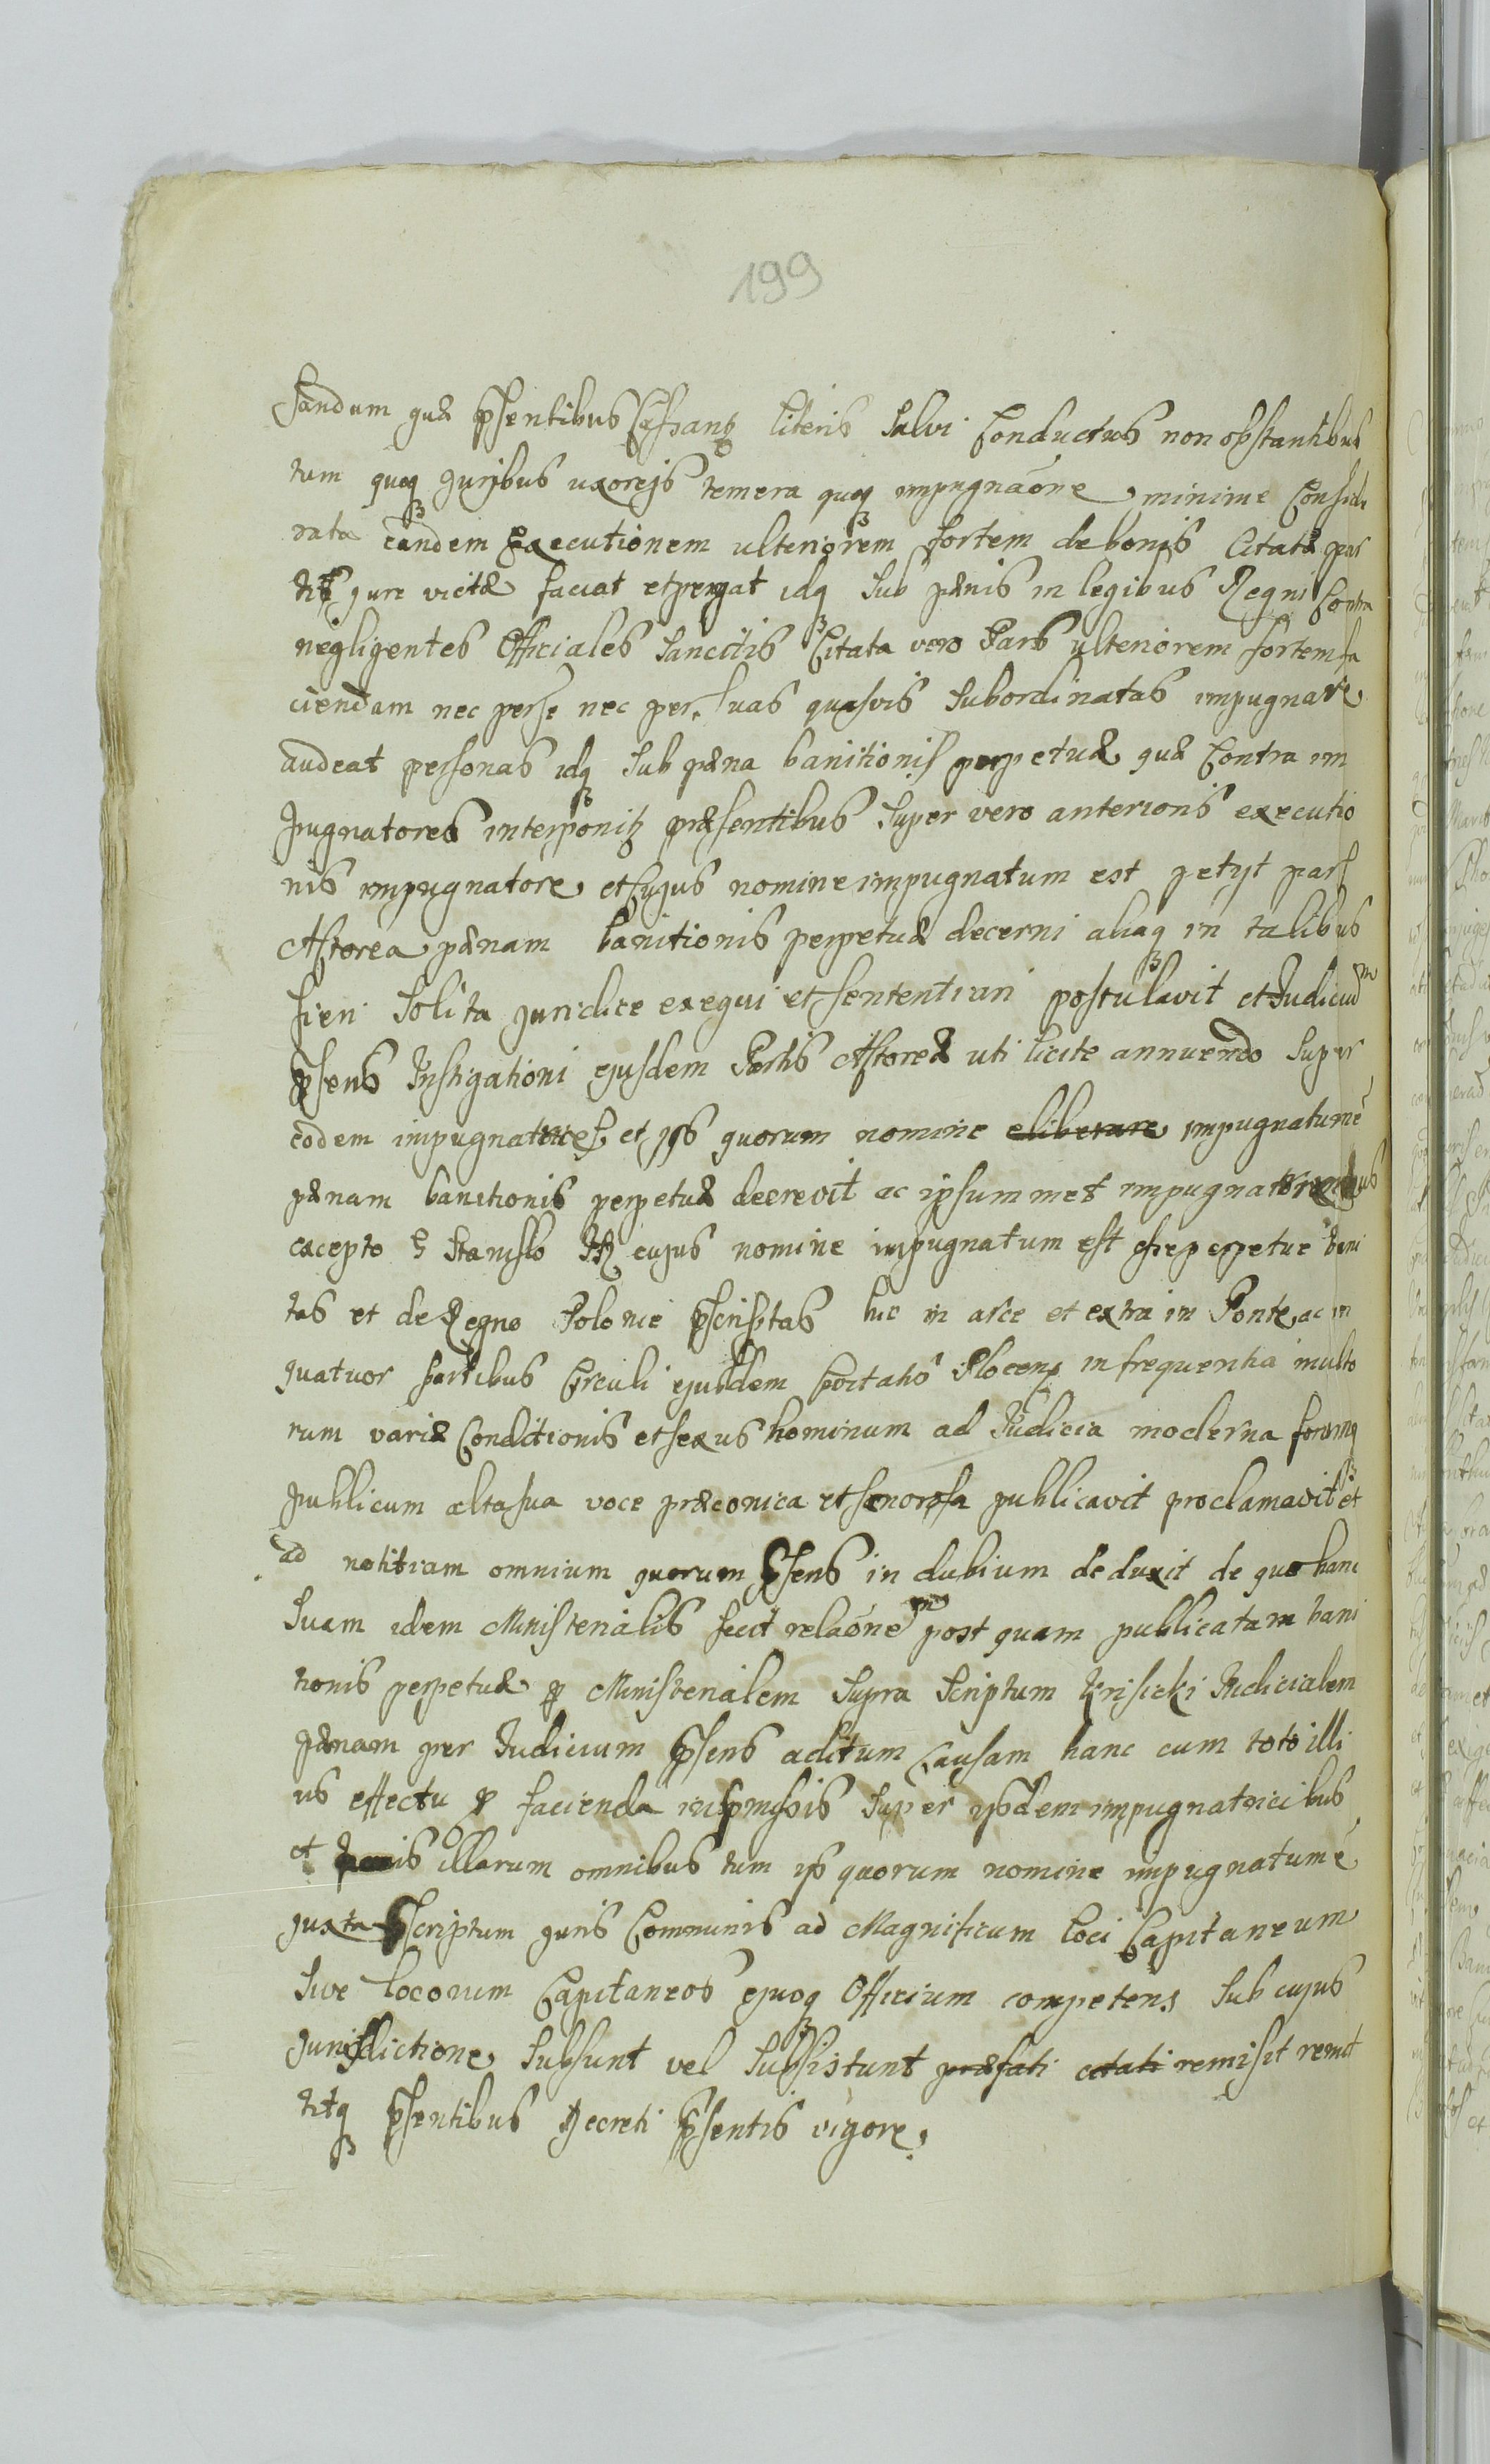 199
sandum quæ p̃sentibus Cassantʒ literis Salvi Conductus non obstantibus
tum quoqʒ juribus uxoreis temera quoqʒ impugnaõne minime Conside
rata eandem Executionem ulteriorem fortem de bonis Citatæ par
tis jure victæ faciat et peragat idqʒ sub pænis in legibus Regni Contra
negligentes Officiales sancitis Citata vero Pars ulteriorem fortem fa
ciendam nec per se nec per suas quasvis Subordinatas impugnare
audeat personas idqʒ sub pæna banitionis perpetuæ quæ Contra im
pugnatores interponitʒ præsentibus Super vero anterioris executio
nis impugnatore et Cujus nomine impugnatum est petyt pars
Actorea pænam banitionis perpetuæ decerni aliaqʒ in talibus
fieri Solita juridice exequi et sententiari postulavit et Judiciũm
p̃sens Instigationi ejusdem Partis Actoreæ uti licite annuendo Super
eodem impugnatrices et ijs quorum nomine eliberare impugnatum ẽ
pænam banitionis perpetuæ decrevit ac ipsummet impugnatricibus
excepto G Stanislo cujus nomine impugnatum est perpetue bani
tas et de Regno Poloniẽ p̃scriptas hic in arce et extra in Ponte ac in
quatuor partibus Circuli ejusdem Civitatis Plocensʒ in frequentia multo
rum variæ Conditionis et sexus hominum ad Judicia moderna forumqʒ
publicum alta sua voce præconica et sonorosa publicavit proclamavit et
ad notitiam omnium quorum p̃sens in dubium deduxit de quo hanc
Suam idem Ministerialis fecit relaõnem post quam publicatam bani
tionis perpetuæ p Ministerialem Supra Scriptum Krisicki Judicialem
pænam per Judicium p̃sens aditum Causam hanc cum toto illi
us effectu p facienda in p̃missis Super ijsdem impugnatricibus
et bonis illarum omnibus tum ijs quorum nomine impugnatum ẽ
juxta p̃scriptum juris Communis ad Magnificum loci Capitaneum
Sive locorum Capitaneos ejusqʒ Officium competens Sub cujus
jurisdictione Subsunt vel Subsistunt præfati citati remisit remit
titqʒ p̃sentibus Decreti p̃sentis vigore.